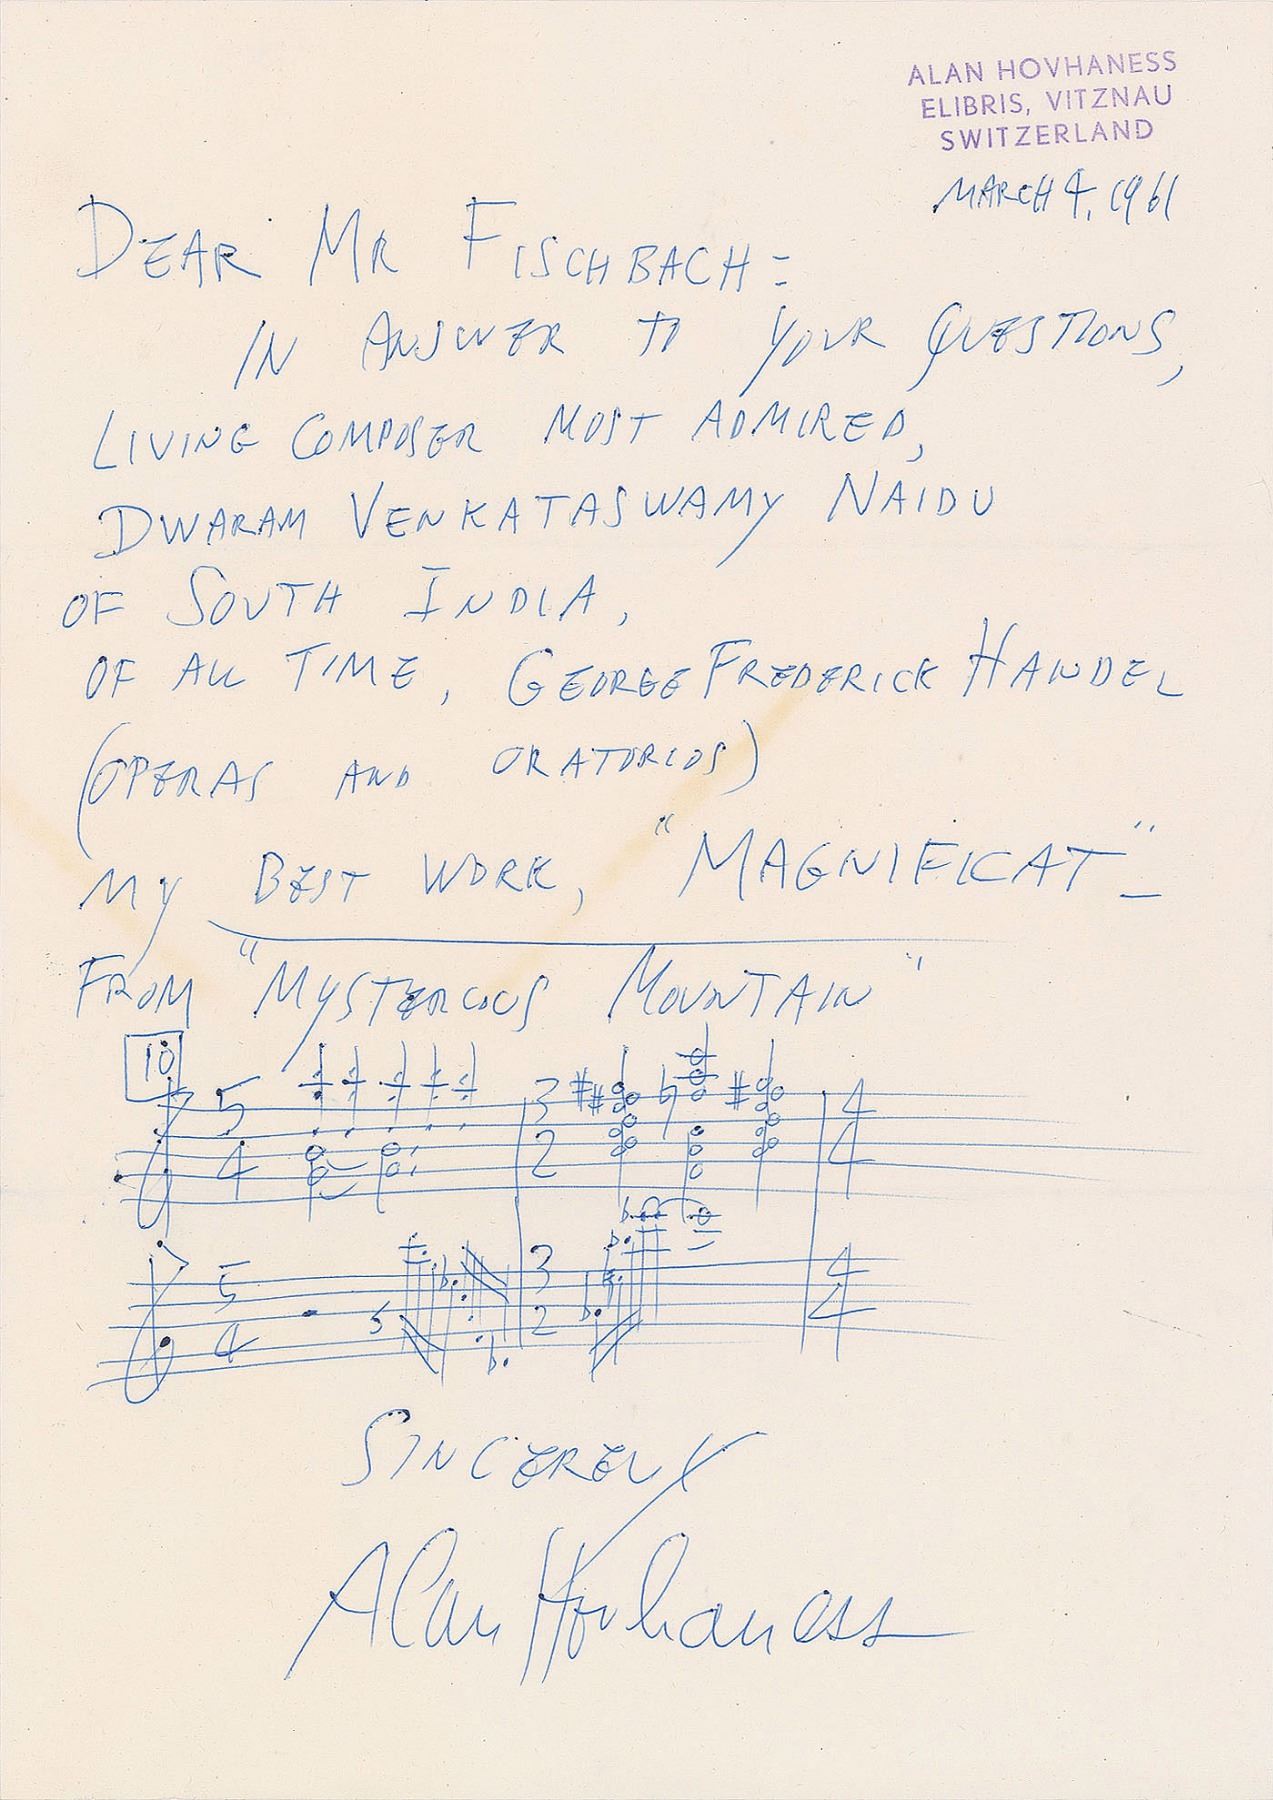 ALAN HOVHANESS
ELIBRIS, VITZNAU
SWITZERLAND
MARCH 4, 1961
DEAR MR FISCHBACH:
IN ANSWER TO YOUR QUESTIONS,
LIVING COMPOSER MOST ADMIRED,
DWARAM VENKATASWAMY NAIDU
OF SOUTH INDIA,
OF ALL TIME, GEORGE FREDERICK HANDEL
(OPERAS AND ORATORIOS)
MY BEST WORK, "MAGNIFICAT"_
FROM "MYSTERIOUS MOUNTAIN"
10
5 3 4
4 2 4
5 3 4
4 5 2 4
SINCERELY
Alan Hovhaness